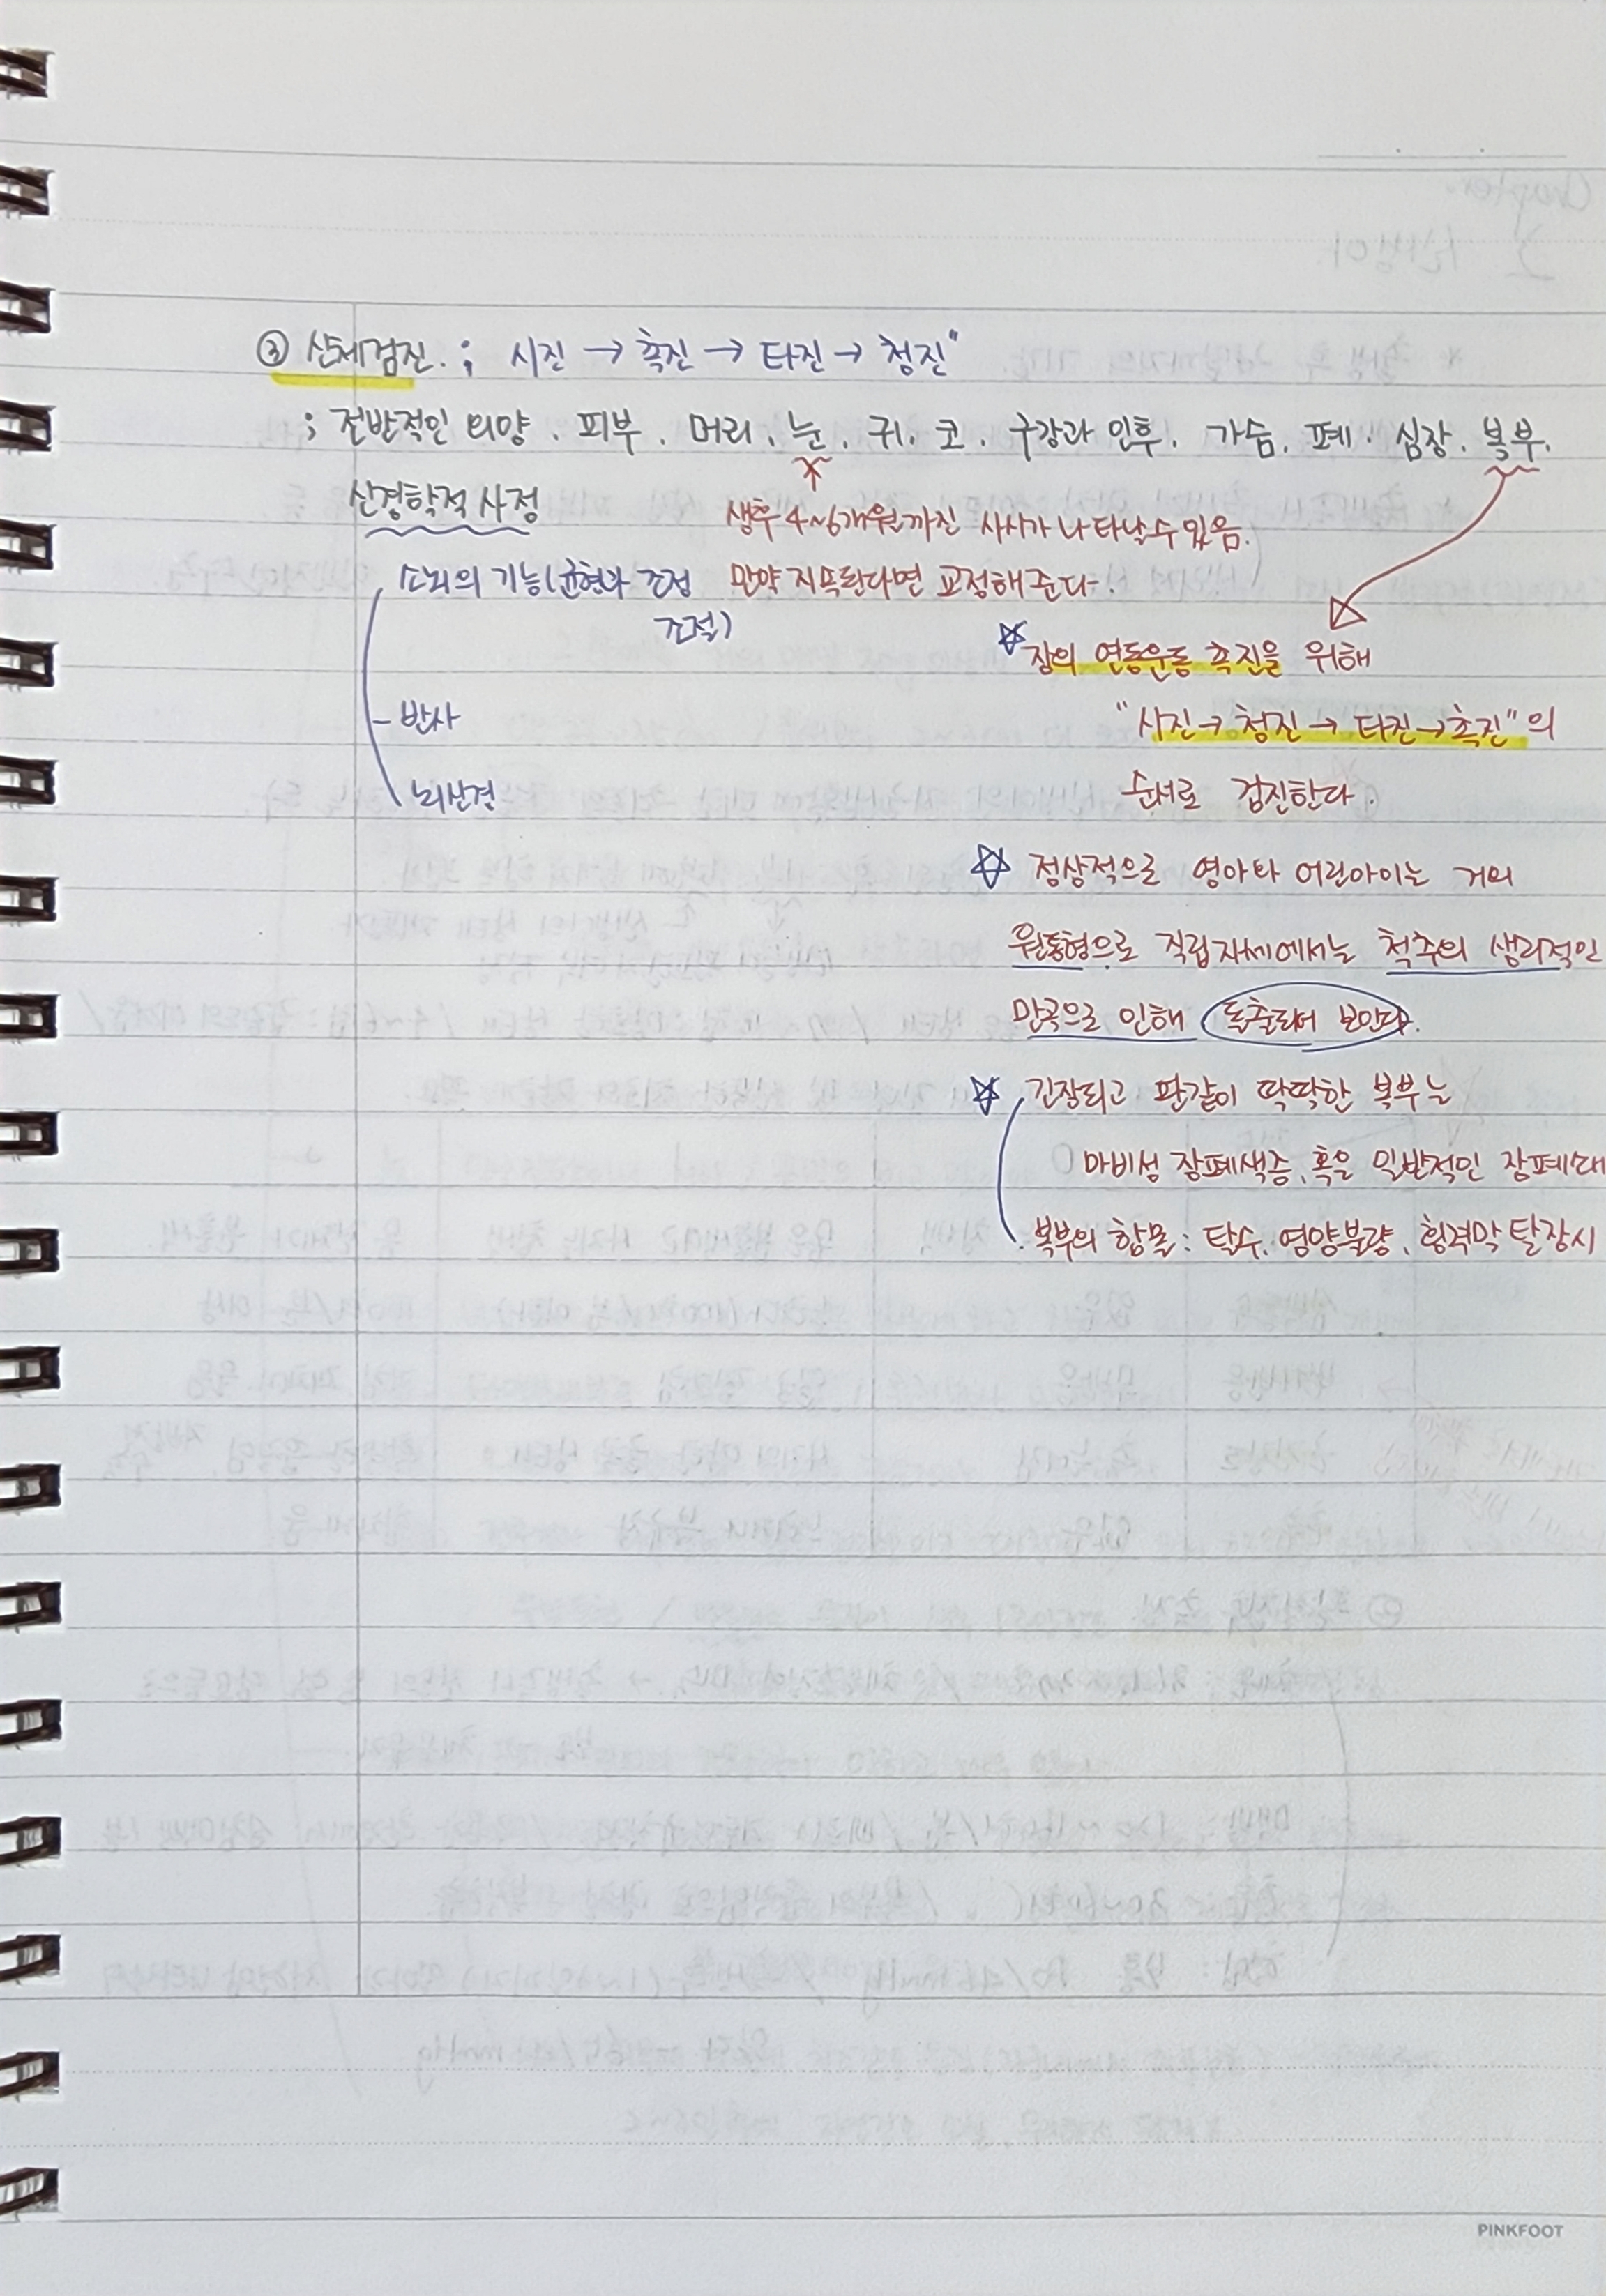 ③ 신체검진. ; 시진 → 촉진 → 타진 → 청진"
; 전반적인 외양. 피부. 머리. 눈. 귀. 코. 구강과 인후. 가슴. 폐. 심장. 복부.
신경학적 사정
생후 4~6개월까진 사시가 나타날 수 있음.
만약 지속된다면 교정해준다.
소뇌의 기능(균형과 조정
조절)
- 반사
뇌신경
☆ 장의 연동운동 촉진을 위해
"시진→청진→타진→촉진"의
순서로 검진한다.
☆ 정상적으로 영아와 어린아이는 거의
원통형으로 직립자세에서는 척추의 생리적인
만곡으로 인해 돌출되어 보인다.
☆ 긴장되고 판같이 딱딱한 복부는
마비성 장폐색증, 혹은 일반적인 장폐색
복부의 함몰: 탈수. 영양불량. 횡격막 탈장시
PINKFOOT